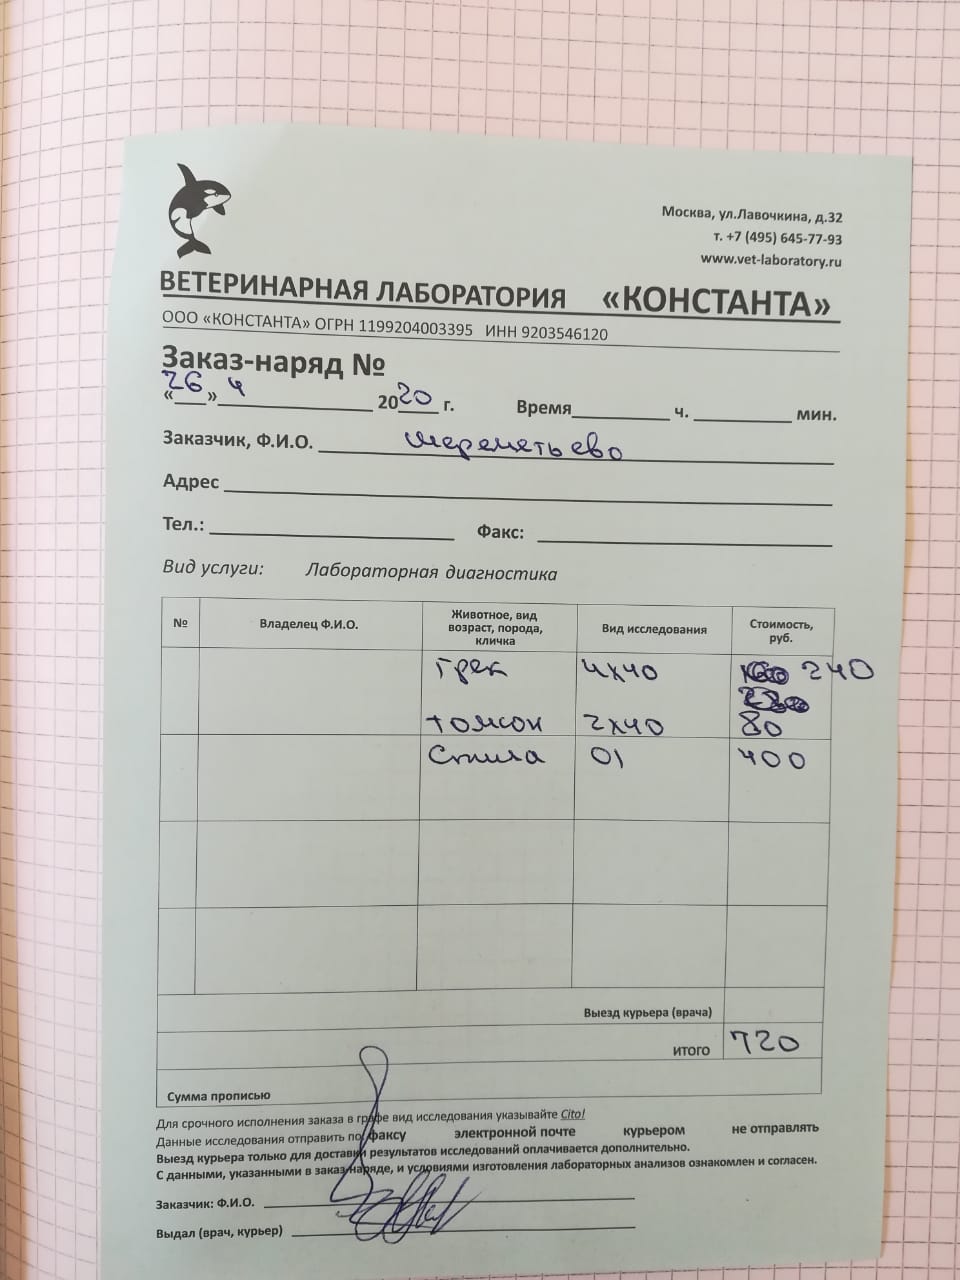 Москва, ул.Лавочкина, д.32
т. +7 (495) 645-77-93
www.vet-laboratory.ru
ВЕТЕРИНАРНАЯ ЛАБОРАТОРИЯ «КОНСТАНТА»
ООО «КОНСТАНТА» ОГРН 1199204003395 ИНН 9203546120
Заказ-наряд №
«26» 4 2020 г. Время ч. мин.
Заказчик, Ф.И.О. шереметьево
Адрес
Тел.: Факс:
Вид услуги: Лабораторная диагностика
№ Владелец Ф.И.О. Животное, вид возраст, порода, кличка Вид исследования Стоимость, руб.
Грек 4х40 240
Томсон 2х40 80
01 400
Выезд курьера (врача)
ИТОГО 720
Сумма прописью
Для срочного исполнения заказа в графе вид исследования указывайте Cito!
Данные исследования отправить по факсу электронной почте курьером не отправлять
Выезд курьера только для доставки результатов исследований оплачивается дополнительно.
С данными, указанными в заказ-наряде, и условиями изготовления лабораторных анализов ознакомлен и согласен.
Заказчик: Ф.И.О.
Выдал (врач, курьер)